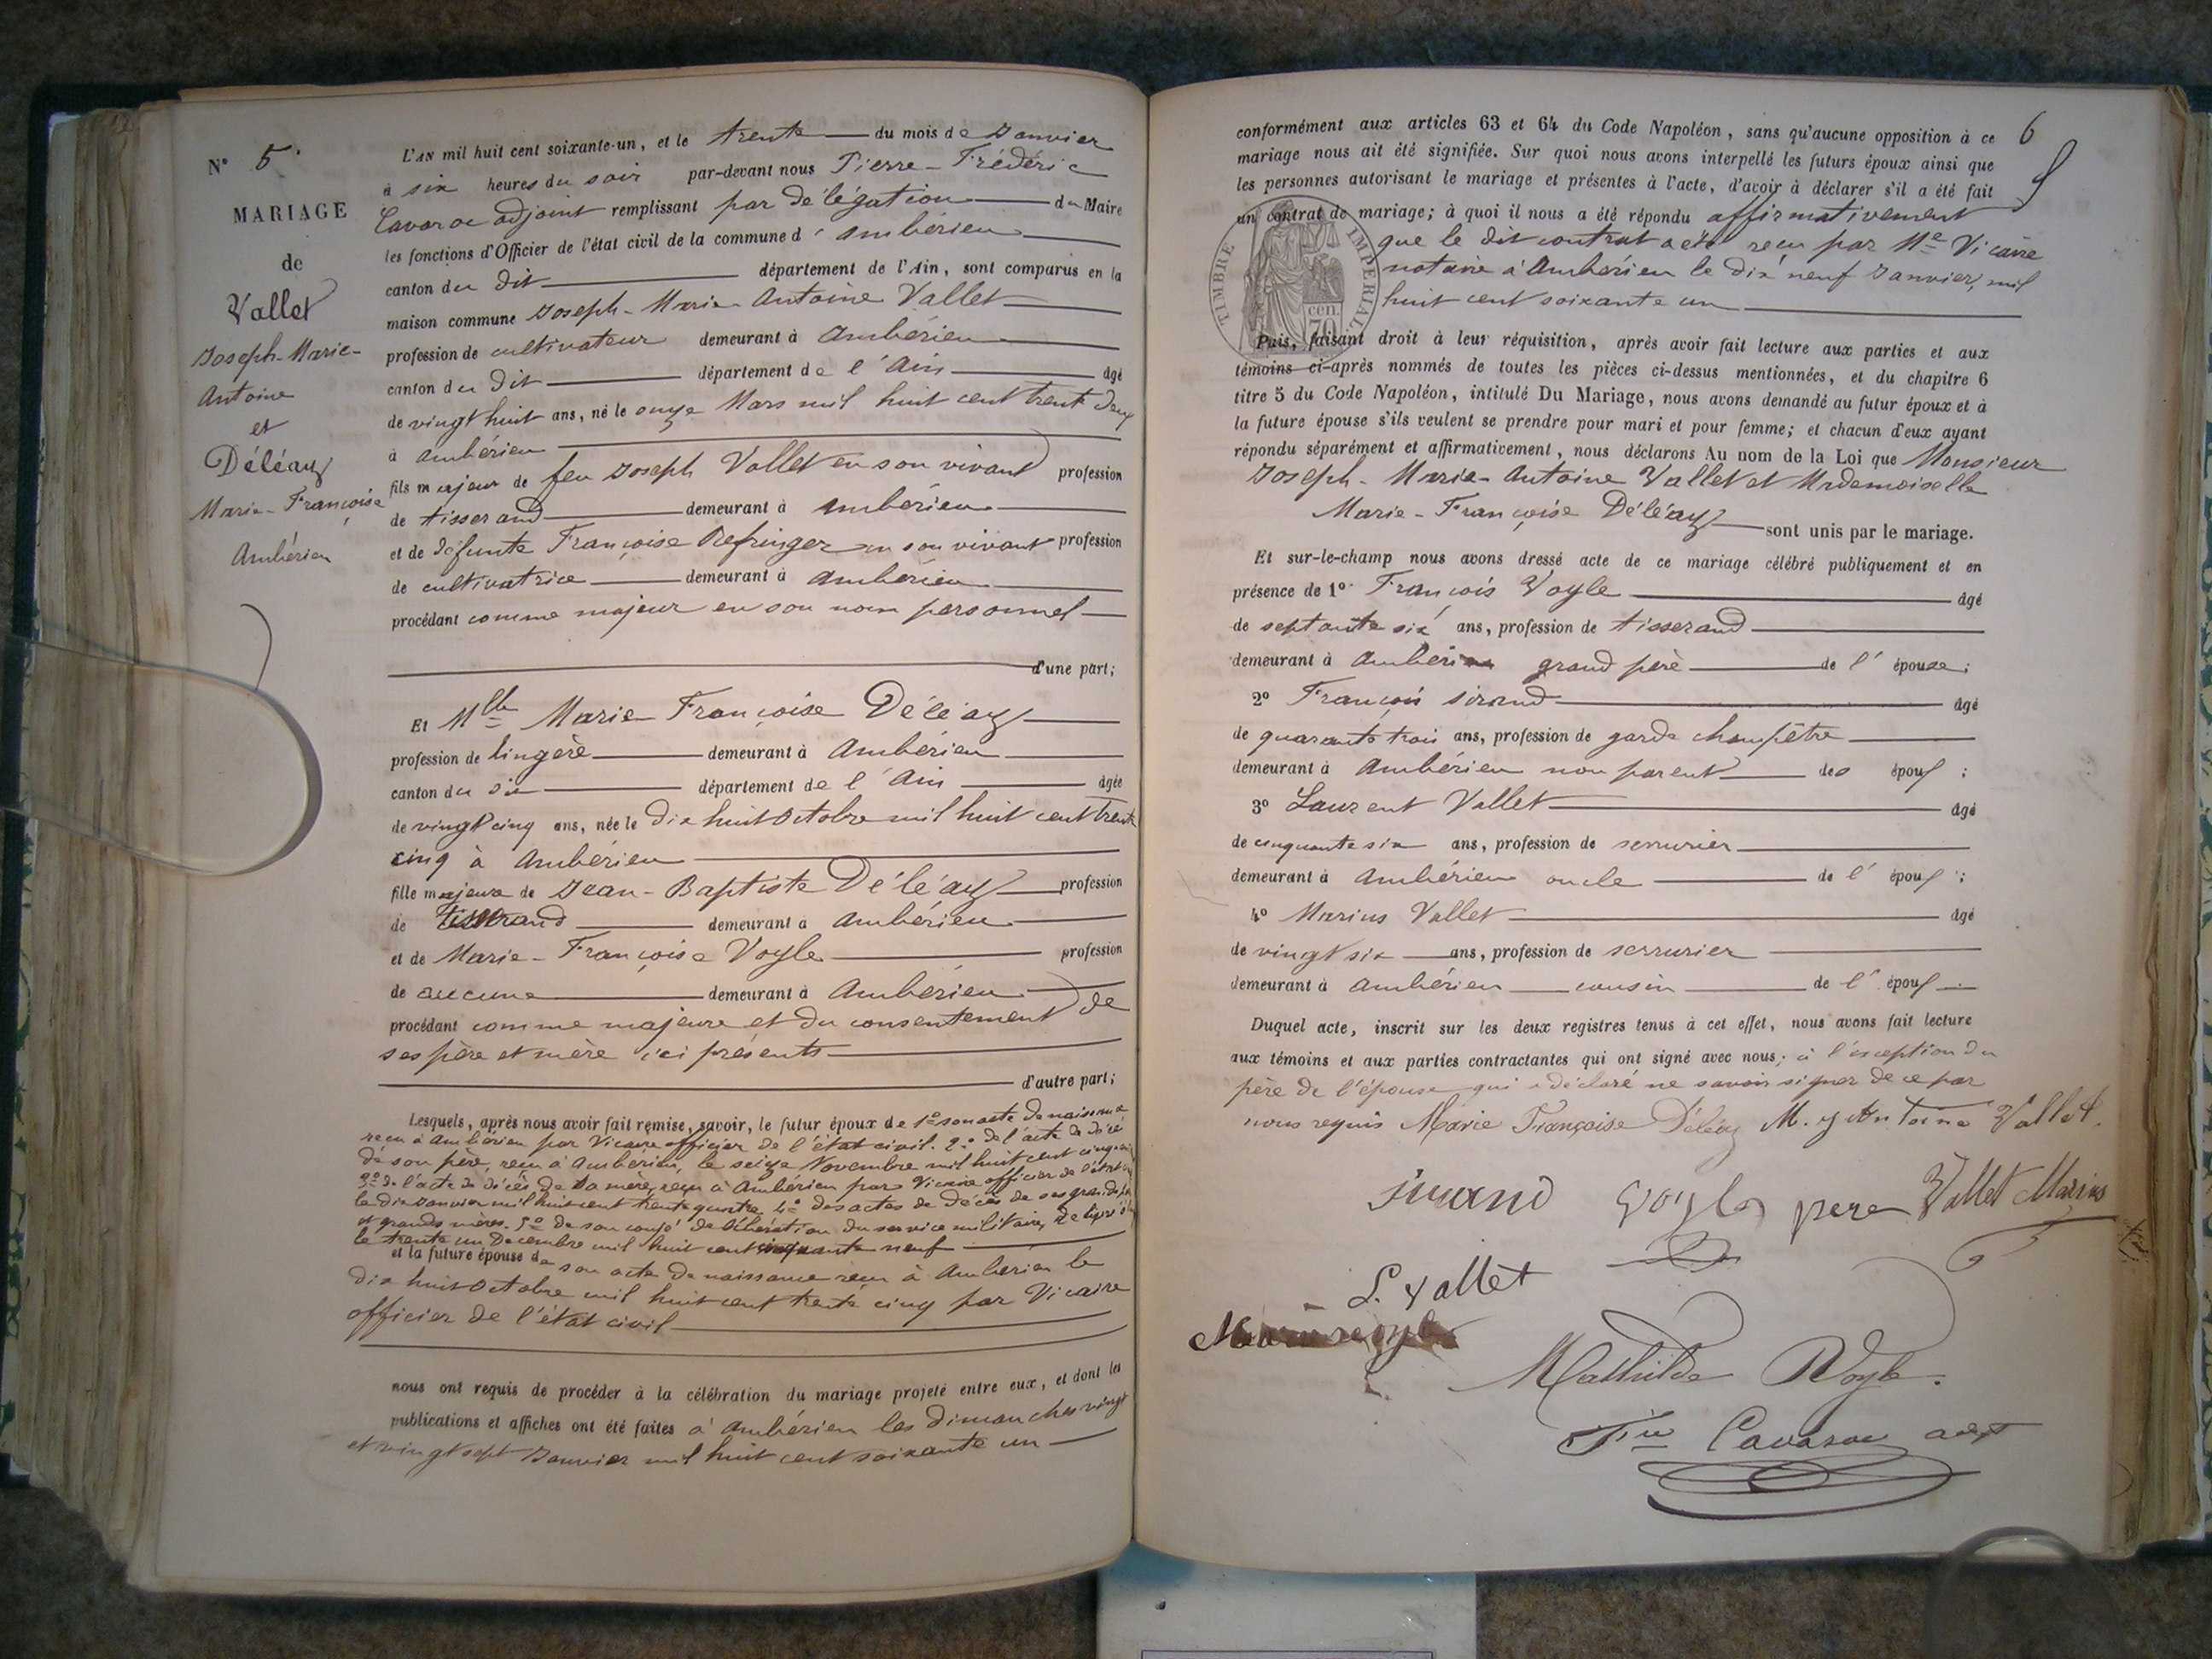 N° 5.
MARIAGE
de
Vallet
Joseph-Marie-
Antoine
et
Déléaz
Marie-Françoise
Ambérieu
L'AN mil huit cent soixante-un, et le trente du mois de Janvier
à six heures du soir par-devant nous Pierre-Frédéric
adjoint remplissant par délégation du Maire
les fonctions d'Officier de l'état civil de la commune d'Ambérieu
canton du dit département de l'Ain, sont comparus en la
maison commune Joseph-Marie-Antoine Vallet
profession de cultivateur demeurant à Ambérieu
canton du dit département de l'Ain âgé
de vingt huit ans, né le onze Mars mil huit cent trente deux
à Ambérieu
fils majeur de feu Joseph Vallet en son vivant profession
de tisserand demeurant à Ambérieu
et de défunte Françoise en son vivant profession
de cultivatrice demeurant à Ambérieu
procédant comme majeur en son nom personnel
d'une part;
Et Mlle Marie-Françoise Déléaz
profession de lingère demeurant à Ambérieu
canton du dit département de l'Ain âgée
de vingt cinq ans, née le dix huit Octobre mil huit cent trente
cinq à Ambérieu
fille majeure de Jean-Baptiste Déléaz profession
de tisserand demeurant à Ambérieu
et de Marie-Françoise Voyle profession
de aucune demeurant à Ambérieu
procédant comme majeure et du consentement de
ses père et mère ici présents
d'autre part;
Lesquels, après nous avoir fait remise, savoir, le futur époux de 1° son acte de naissance
reçu à Ambérieu par Vicaire officier de l'état civil. 2° de l'acte de décè
de son père, reçu à Ambérieu, le seize Novembre mil huit cent
3° de l'acte de décès de sa mère, reçu à Ambérieu par Vicaire officier de l'état
le dix Janvier mil huit cent trente quatre 4° des actes de décès de ses grands
et grands mères. 5° de son congé de libération du service militaire, délivré
le trente un Décembre mil huit cent cinquante neuf
et la future épouse de son acte de naissance reçu à Ambérieu le
dix huit Octobre mil huit cent trente cinq par Vicaire
officier de l'état civil
nous ont requis de procéder à la célébration du mariage projeté entre eux, et dont les
publications et affiches ont été faites à Ambérieu les dimanches vingt
et vingt sept Janvier mil huit cent soixante un
6
conformément aux articles 63 et 64 du Code Napoléon, sans qu'aucune opposition à ce
mariage nous ait été signifiée. Sur quoi nous avons interpellé les futurs époux ainsi que
les personnes autorisant le mariage et présentes à l'acte, d'avoir à déclarer s'il a été fait
un contrat de mariage; à quoi il nous a été répondu affirmativement
que le dit contrat a été reçu par Me Vicaire
notaire à Ambérieu le dix neuf Janvier, mil
huit cent soixante un
TIMBRE IMPERIAL
cen.
70
Puis, faisant droit à leur réquisition, après avoir fait lecture aux parties et aux
témoins ci-après nommés de toutes les pièces ci-dessus mentionnées, et du chapitre 6
titre 5 du Code Napoléon, intitulé Du Mariage, nous avons demandé au futur époux et à
la future épouse s'ils veulent se prendre pour mari et pour femme; et chacun d'eux ayant
répondu séparément et affirmativement, nous déclarons Au nom de la Loi que Monsieur
Joseph-Marie-Antoine Vallet et Mademoiselle
Marie-Françoise Déléaz sont unis par le mariage.
Et sur-le-champ nous avons dressé acte de ce mariage célébré publiquement et en
présence de 1° François Voyle âgé
de septante six ans, profession de tisserand
demeurant à Ambérieu grand père de l'épouse;
2° François Sirand âgé
de quarante trois ans, profession de garde champêtre
demeurant à Ambérieu non parent des époux;
3° Laurent Vallet âgé
de cinquante six ans, profession de serrurier
demeurant à Ambérieu oncle de l'époux;
4° Marius Vallet âgé
de vingt six ans, profession de serrurier
demeurant à Ambérieu cousin de l'époux.
Duquel acte, inscrit sur les deux registres tenus à cet effet, nous avons fait lecture
aux témoins et aux parties contractantes qui ont signé avec nous, à l'exception du
père de l'épouse qui a déclaré ne savoir signer de ce par
nous requis Marie Françoise Déléaz M. J Antoine Vallet.
Sirand Voyle pere Vallet Marius
L. Vallet
Mathilde Voyle.